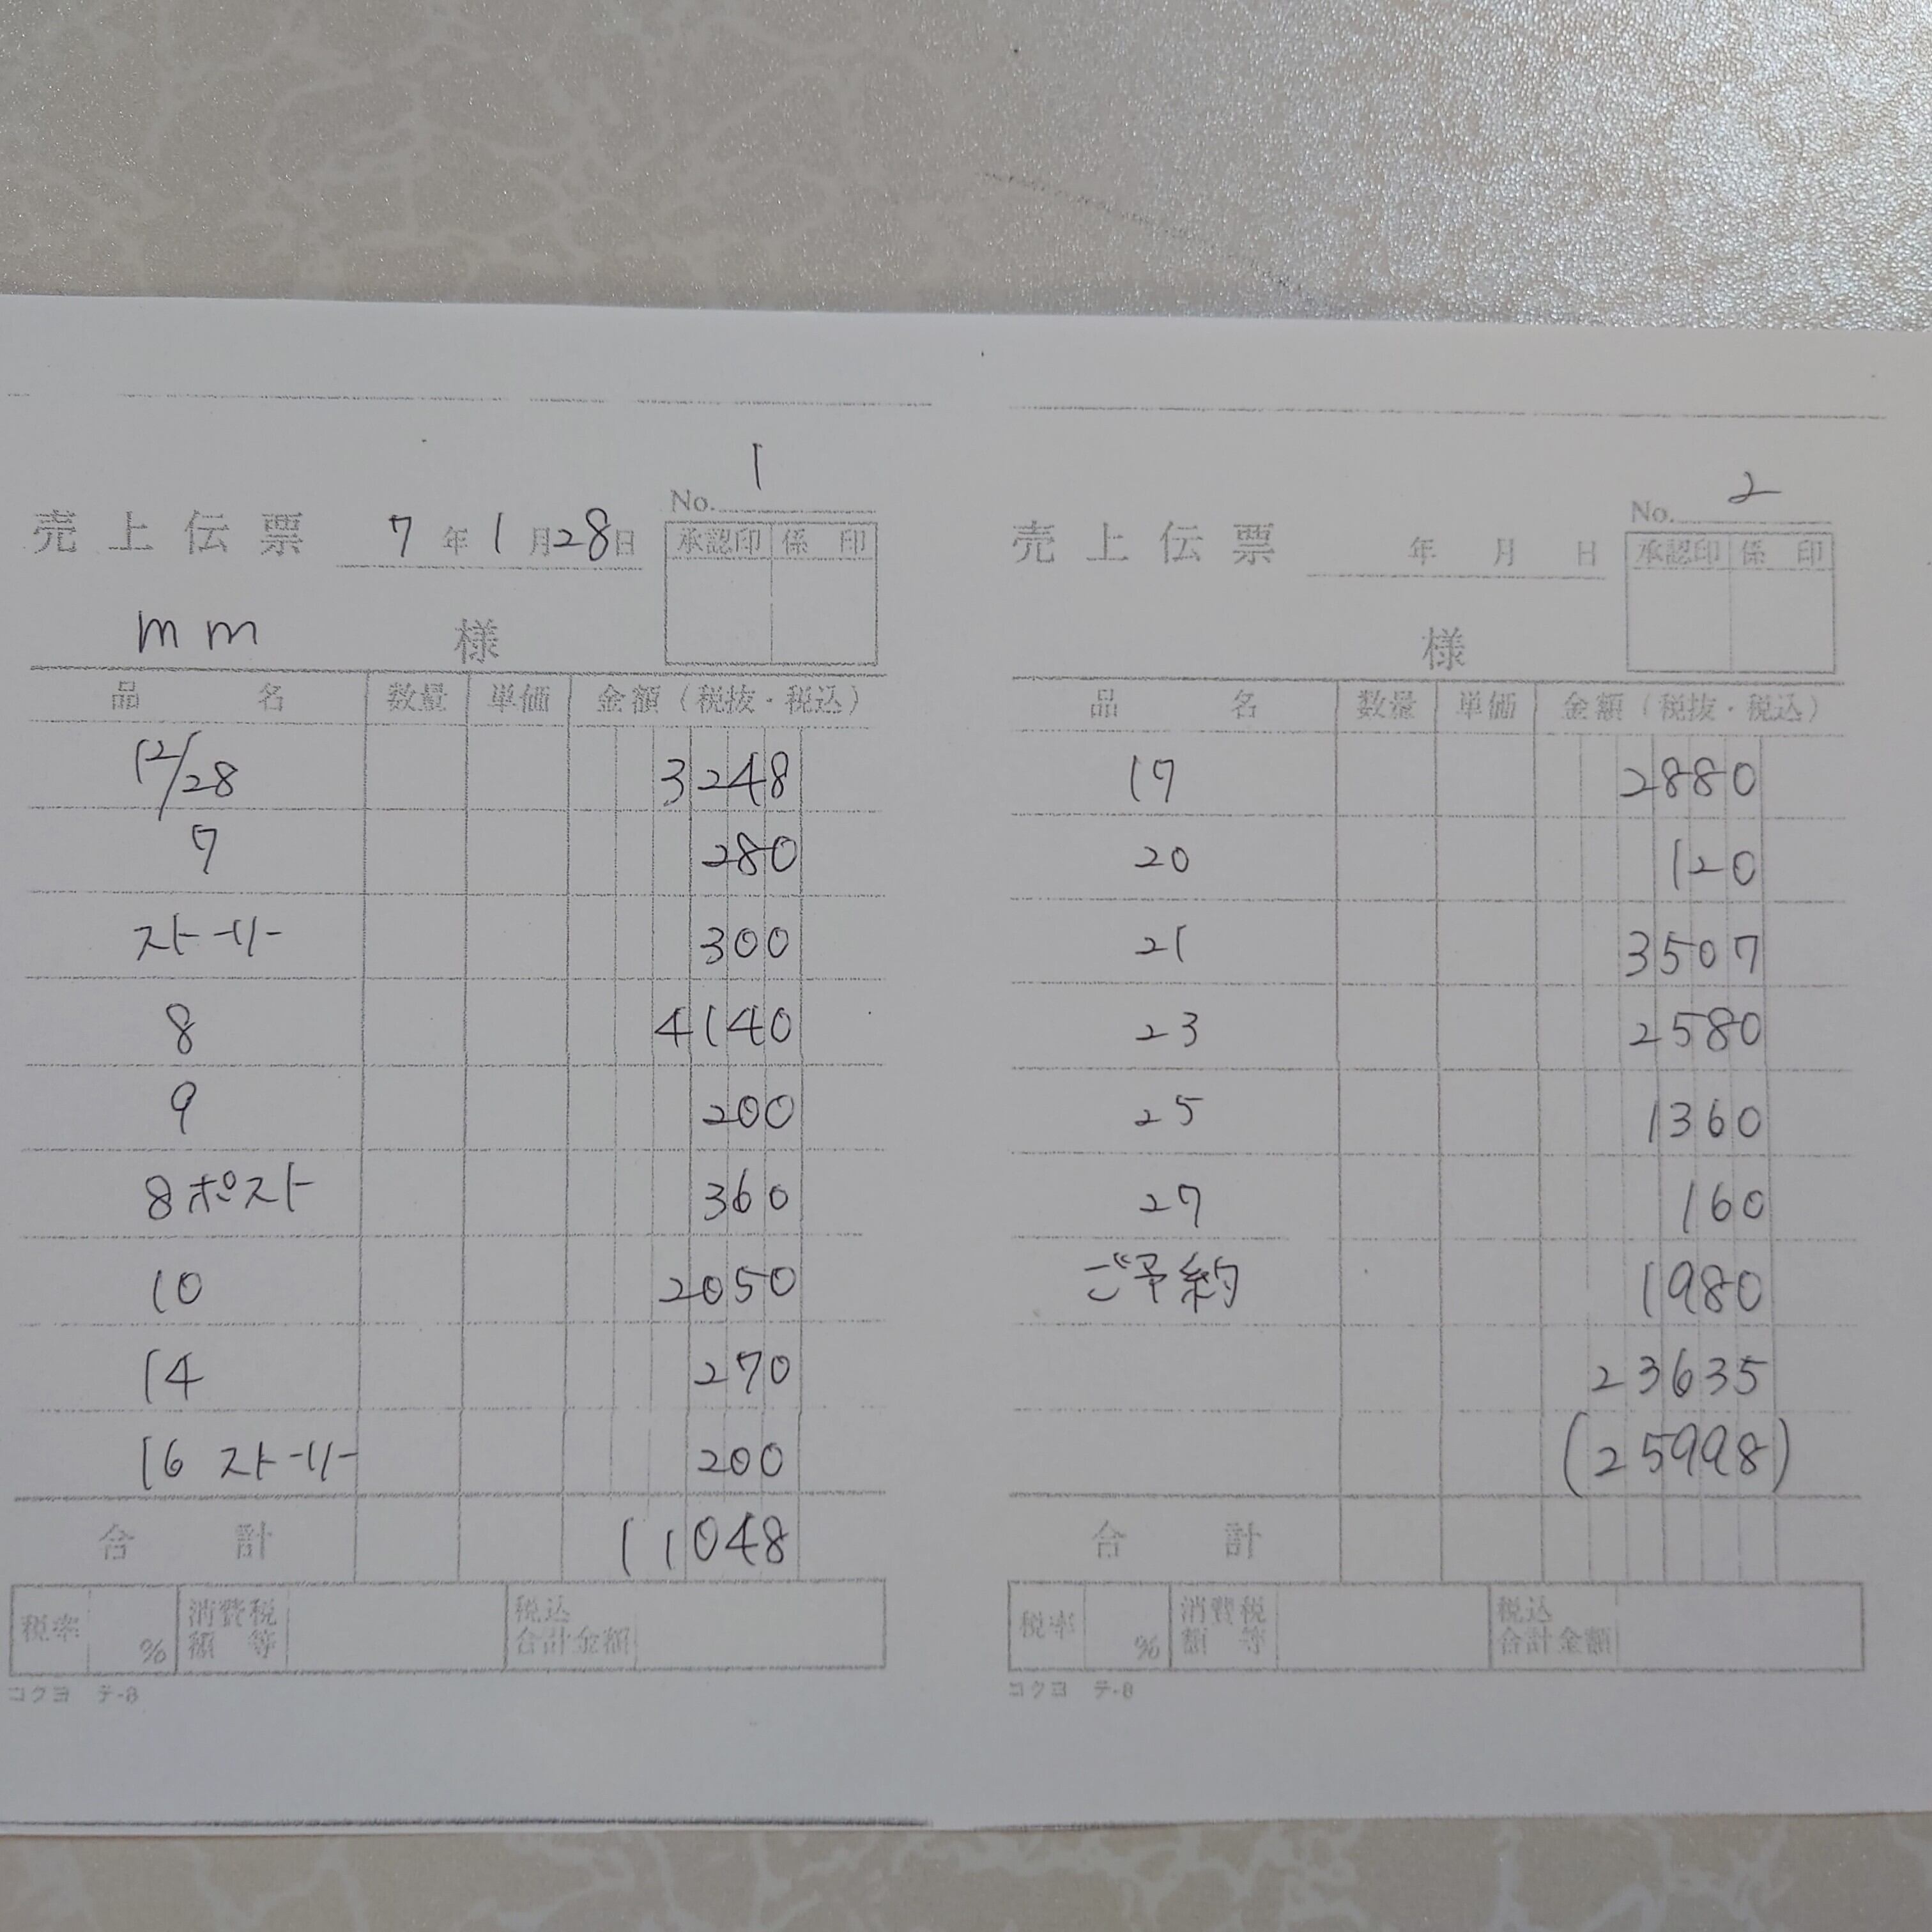 1
No.
売上伝票 7年1月28日
承認印 係印
mm 様
品名 数量 単価 金額(税抜・税込)
12/28 3248
7 280
ストーリー 300
8 4140
9 200
8ポスト 360
10 2050
14 270
16 ストーリー 200
合計 11048
税率 % 消費税額等 税込合計金額
コクヨ テ-8
2
No.
売上伝票 年 月 日
承認印 係印
様
品名 数量 単価 金額(税抜・税込)
17 2880
20 120
21 3507
23 2580
25 1360
27 160
ご予約 1980
23635
(25998)
合計
税率 % 消費税額等 税込合計金額
コクヨ テ-8